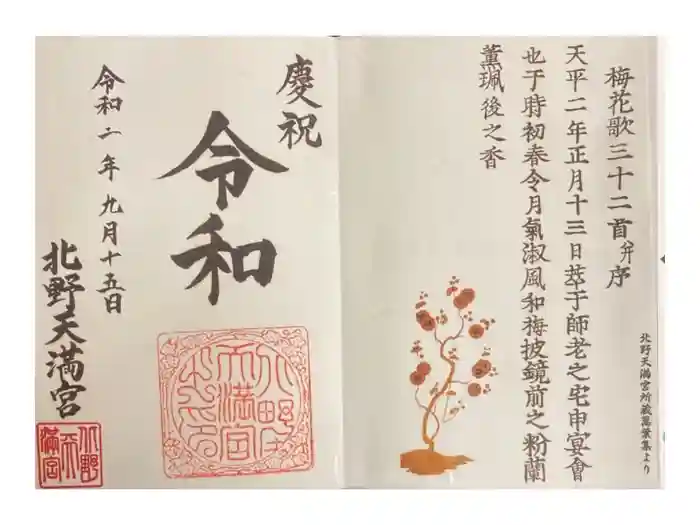 梅花歌三十二首并序
天平二年正月十三日萃于師老之宅申宴會
也于時初春令月氣淑風和梅披鏡前之粉蘭
薫珮後之香
北野天満宮所蔵萬葉集より
慶祝
令和
令和二年九月十五日
北野天満宮
北野天満宮